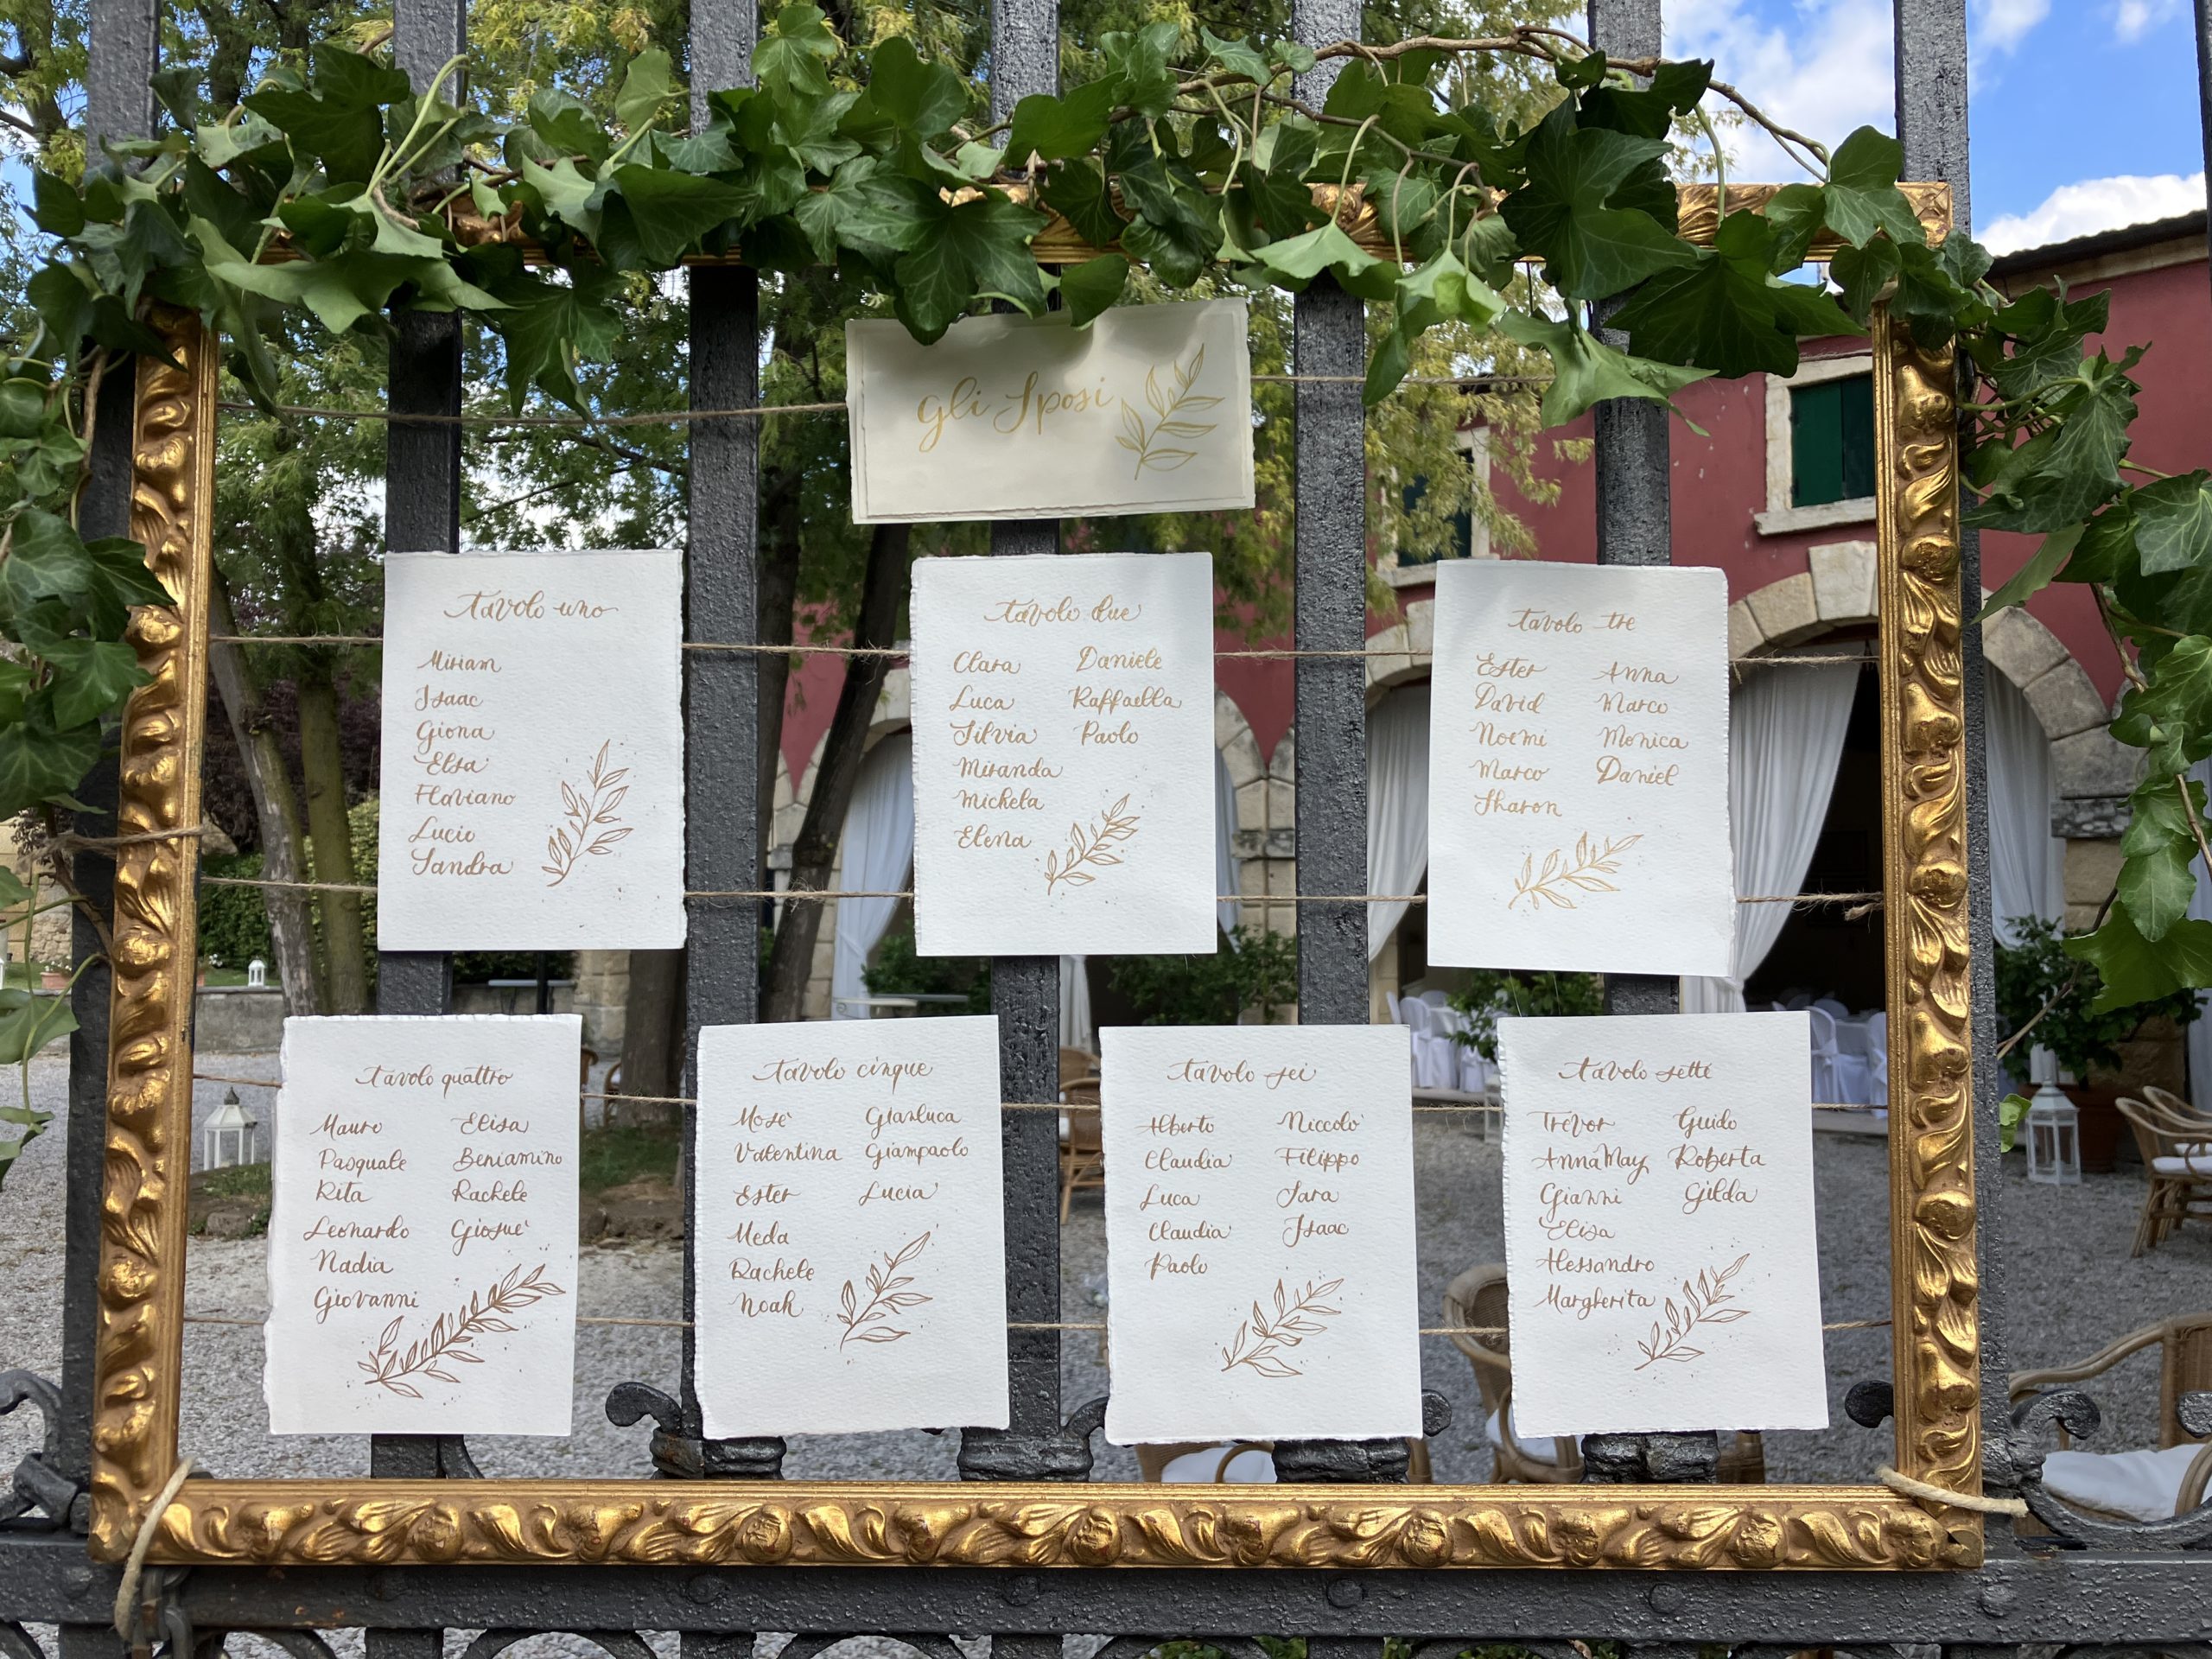 gli Sposi
tavolo uno
Miriam
Isaac
Giona
Elsa
Flaviano
Lucio
Sandra
tavolo due
Clara Daniele
Luca Raffaella
Silvia Paolo
Miranda
Michela
Elena
tavolo tre
Ester Anna
David Marco
Noemi Monica
Marco Daniel
Sharon
tavolo quattro
Mauro Elisa
Pasquale Beniamino
Rita Rachele
Leonardo Giosue'
Nadia
Giovanni
tavolo cinque
Mose' Gianluca
Valentina Giampaolo
Ester Lucia
Meda
Rachele
Noah
tavolo sei
Alberto Niccolo'
Claudia Filippo
Luca Sara
Claudia Isaac
Paolo
tavolo sette
Trevor Guido
AnnaMay Roberta
Gianni Gilda
Elisa
Alessandro
Margherita